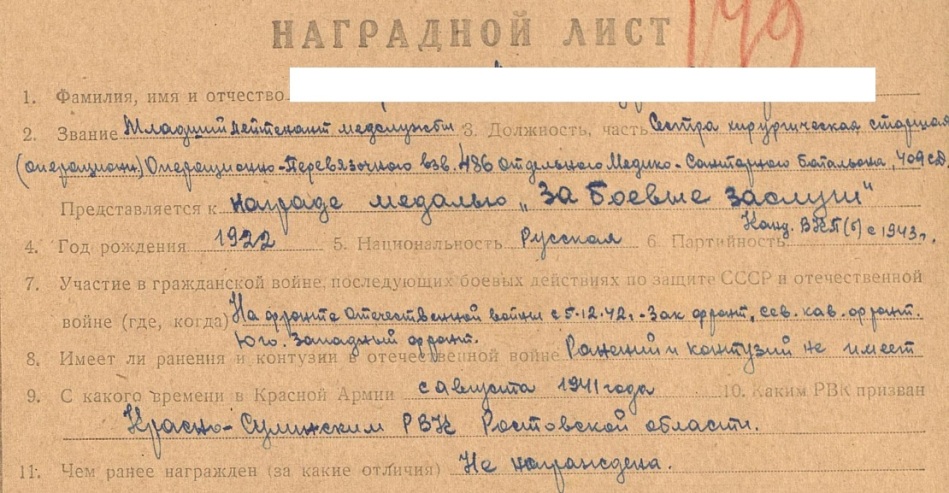 НАГРАДНОЙ ЛИСТ 179
1. Фамилия, имя и отчество
2. Звание Младший лейтенант медслужбы 3. Должность, часть Сестра хирургическая старшая
(операцион.) Операционно-перевязочного взв. 486 Отдельного Медико-Санитарного батальона, 409 сд
Представляется к награде медалью „За Боевые заслуги"
4. Год рождения 1922 5. Национальность Русская 6. Партийность Канд. ВКП(б) с 1943 г.
7. Участие в гражданской войне, последующих боевых действиях по защите СССР и отечественной
войне (где, когда) На фронте Отечественной войны с 5.12.42г. - Зак фронт, сев. кав. фронт.
Юго. Западный фронт.
8. Имеет ли ранения и контузии в отечественной войне Ранений и контузий не имеет
9. С какого времени в Красной Армии с августа 1941 года 10. Каким РВК призван
Красно-Сулинским РВК Ростовской области.
11. Чем ранее награжден (за какие отличия) Не награждена.